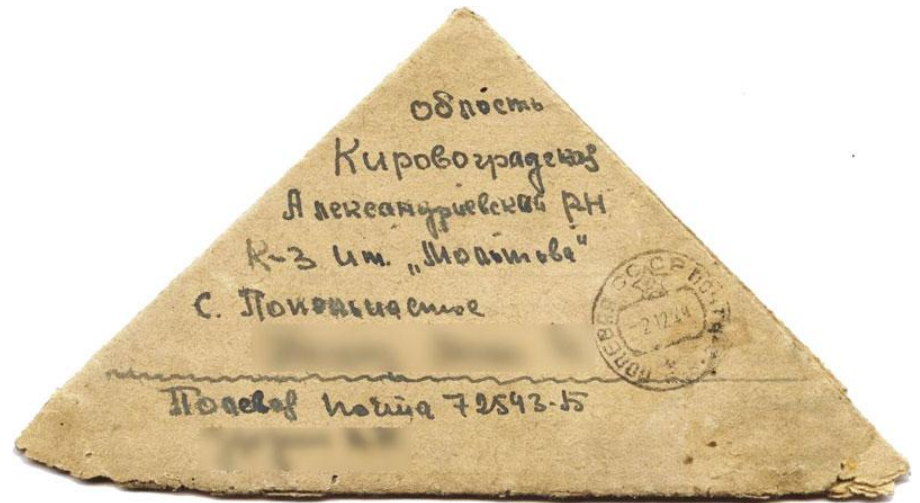 область
Кировоградская
Александриевский РН
К-З Им. „Молотова"
С.
Полевая почта 72543-Б
ПОЛЕВАЯ СССР ПОЧТА
-2 12 44